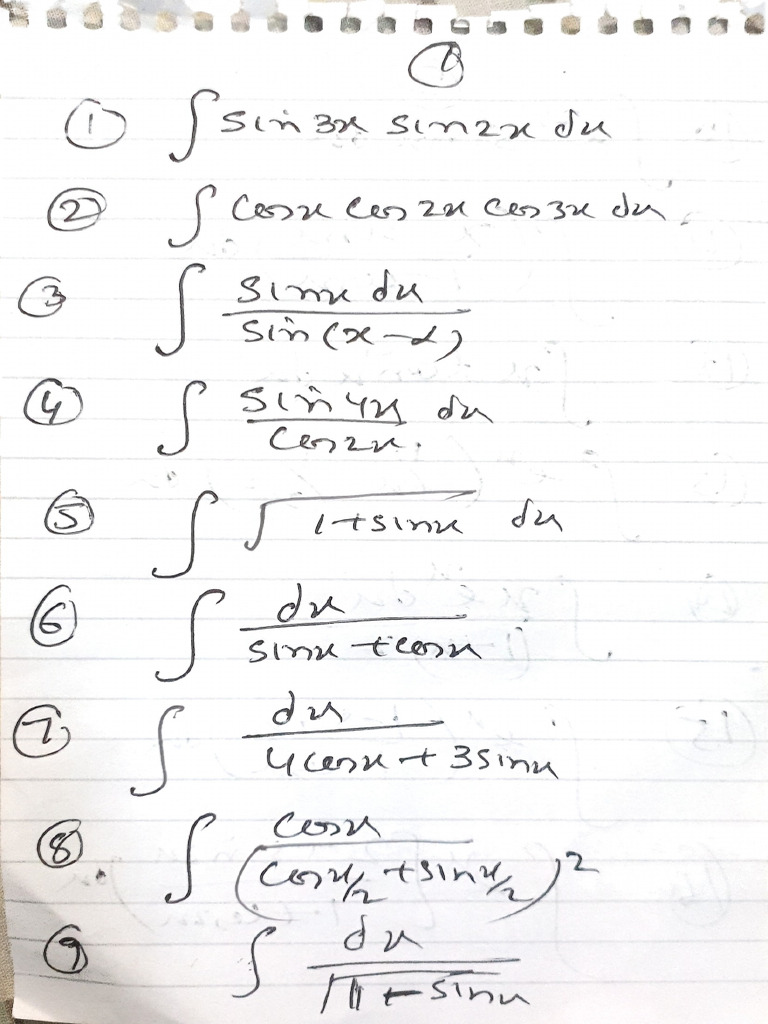 ①
① ∫ sin 3x sin 2x dx
② ∫ cos x cos 2x cos 3x dx
③ ∫ sin x dx / sin (x-α)
④ ∫ sin 4x / cos 2x dx
⑤ ∫ √(1+sin x) dx
⑥ ∫ dx / (sin x + cos x)
⑦ ∫ dx / (4 cos x + 3 sin x)
⑧ ∫ cos x / (cos x/2 + sin x/2)²
⑨ ∫ dx / √(1 + sin x)